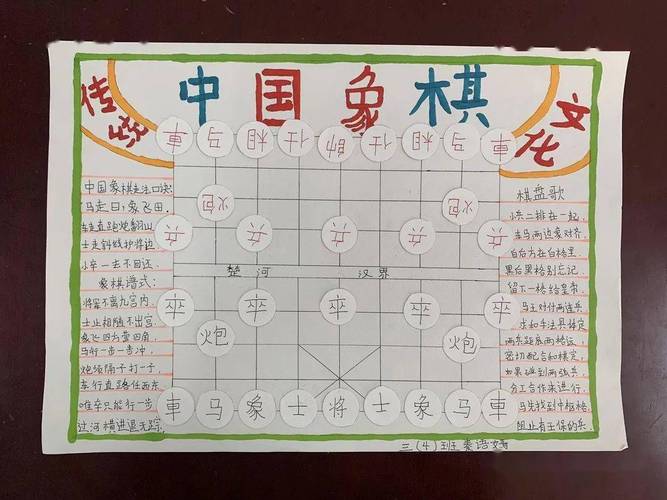 传统
中国象棋
文化
車 马 相 仕 帥 仕 相 马 車
炮 炮
兵 兵 兵 兵 兵
楚河 汉界
卒 卒 卒 卒 卒
炮 炮
車 马 象 士 将 士 象 马 車
中国象棋走法口诀:
马走日,象飞田,
车走直路炮翻山
士走斜线护将边
小卒一去不回还。
象棋谱式:
将军不离九宫内,
士止相随不出宫.
象飞四方营四角,
马行一步一步冲,
炮须隔子打一子,
车行直路任西东
唯卒只能行一步
过河横进退无踪.
棋盘歌
小兵二排在一起,
车马两边象对齐,
白后方在白格里,
黑后黑格别忘记
留下一格给皇帝.
马王对付两连兵
求和手法具特定
两兵距底两格远,
密切配合和棋定,
如果碰到两强兵,
分工合作来进行,
马先找到中格格
阻止有王保的兵.
三(4)班